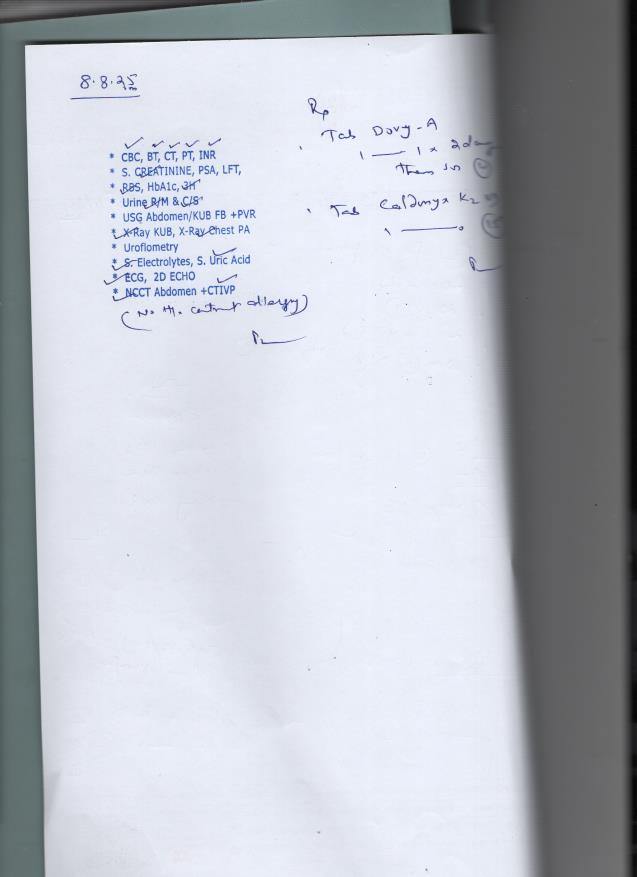 8.8.25
* CBC, BT, CT, PT, INR
* S. CREATININE, PSA, LFT,
* RBS, HbA1c, 3H
* Urine R/M & C/S
* USG Abdomen/KUB FB +PVR
* X-Ray KUB, X-Ray Chest PA
* Uroflometry
* S. Electrolytes, S. Uric Acid
* ECG, 2D ECHO
* NCCT Abdomen +CTIVP
(No H. contrast allergy)
Rp
Tab
1 — 1 x 2 days
then
Tab K2
1 — 0